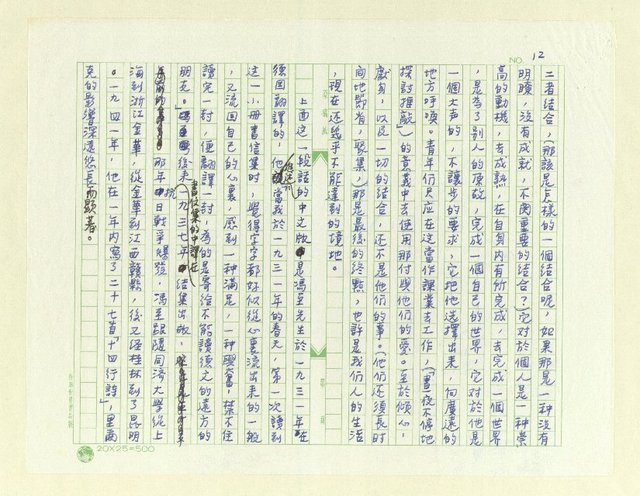 NO. 12
二者結合，（那該是怎樣的一個結合呢，如果那是一種沒有
明瞭，沒有成就，不關重要的結合？）它對於個人是一種崇
高的動機，去成熟，在自身內有所完成，去完成一個世界
，是為了別人的緣故，完成一個自己的世界，它對於他是
一個大声的，不讓步的要求，它把他選擇出來，向廣遠的
地方呼喚。青年們只應在這當作課業去工作，（「晝夜不停地
探討推敲」）的意義中去使用那付與他們的愛。至於傾心，
獻身，以及一切的結合，還不是他們的事。（他們还須長時
間地節省，聚集），那是最後的終點，也許是我們人的生活
，現在还幾乎不能達到的境地。
上面這一段話的中文版是馮至先生於一九三一年在
德國翻譯的，他「當我於一九三一年的春天，第一次讀到
這一小冊書信集時，覺得字字都好似從心裏流出來的一般
，又流回自己的心裏，感到一種滿足，一種興奮，禁不住
讀完一封，便翻譯一封，為的是寄給不能讀德文的遠方的
朋友。」後來（一九三七年）書信集的中譯在結集出版，
那年抗日戰爭爆發，馮至跟隨同濟大學從上
海到浙江金華，從金華到江西贛縣，後又經桂林到了昆明
。一九四一年，他在一年內寫了二十七首「十四行詩」，里爾
克的影響深遠悠長而顯著。
20X25=500